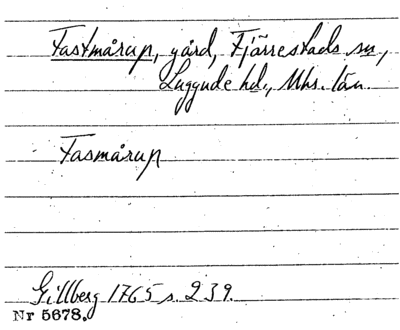 Fastmårup, gård, Fjärrestads sn,
Luggude hd., Mhs. län.
Fasmårup
Gillberg 1765 s. 239.
Nr 5678.